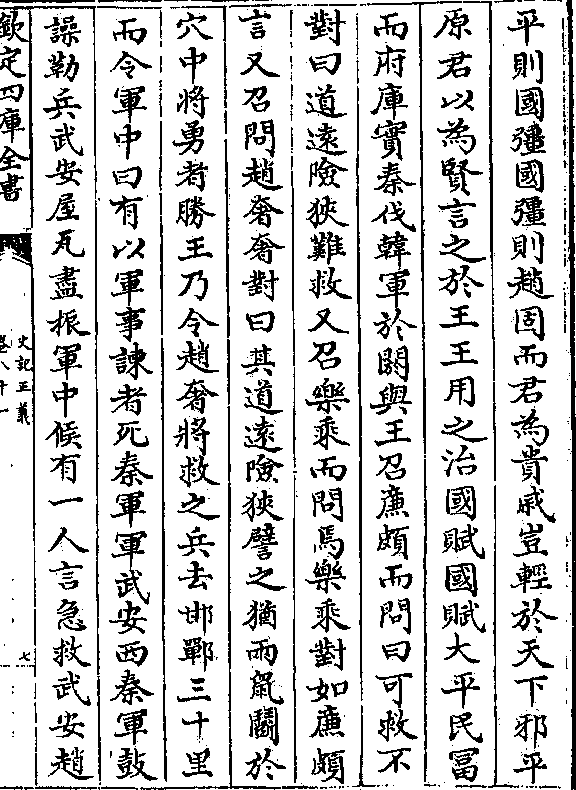 平則國彊國彊則趙固而君為貴戚豈輕於天下邪平
原君以為賢言之於王王用之治國賦國賦大平民冨
而府庫實秦伐韓軍於閼與王召亷頗而問曰可救不
對曰道逺險狹難救又召樂乘而問焉樂乘對如亷頗
言又召問趙奢奢對曰其道逺險狹譬之猶兩䑕鬭於
穴中將勇者勝王乃令趙奢將救之兵去邯鄲三十里
而令軍中曰有以軍事諫者死秦軍軍武安西秦軍鼓
譟勒兵武安屋瓦盡振軍中候有一人言急救武安趙
欽定四庫全書
史記正義
卷八十一
七